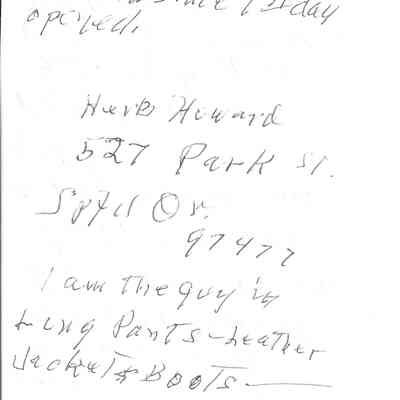 1st day
opened.
Herb Howard
527 Park St.
Spfd Or.
97477
I am the guy in
Long Pants - Leather
Jacket & Boots —